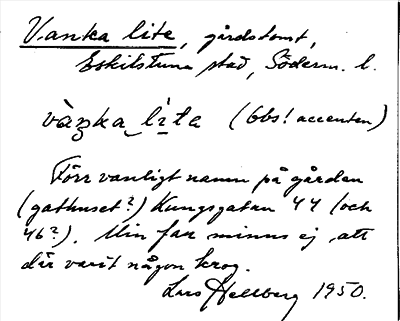 Vanka lite, gårdstomt,
Eskilstuna stad, Söderm. l.
vàŋka lìta (Obs! accenten)
Förr vanligt namn på gården
(gathuset?) Kungsgatan 44 (och
46?). Min far minns ej, att
där varit någon krog.
Lars Hellberg 1950.